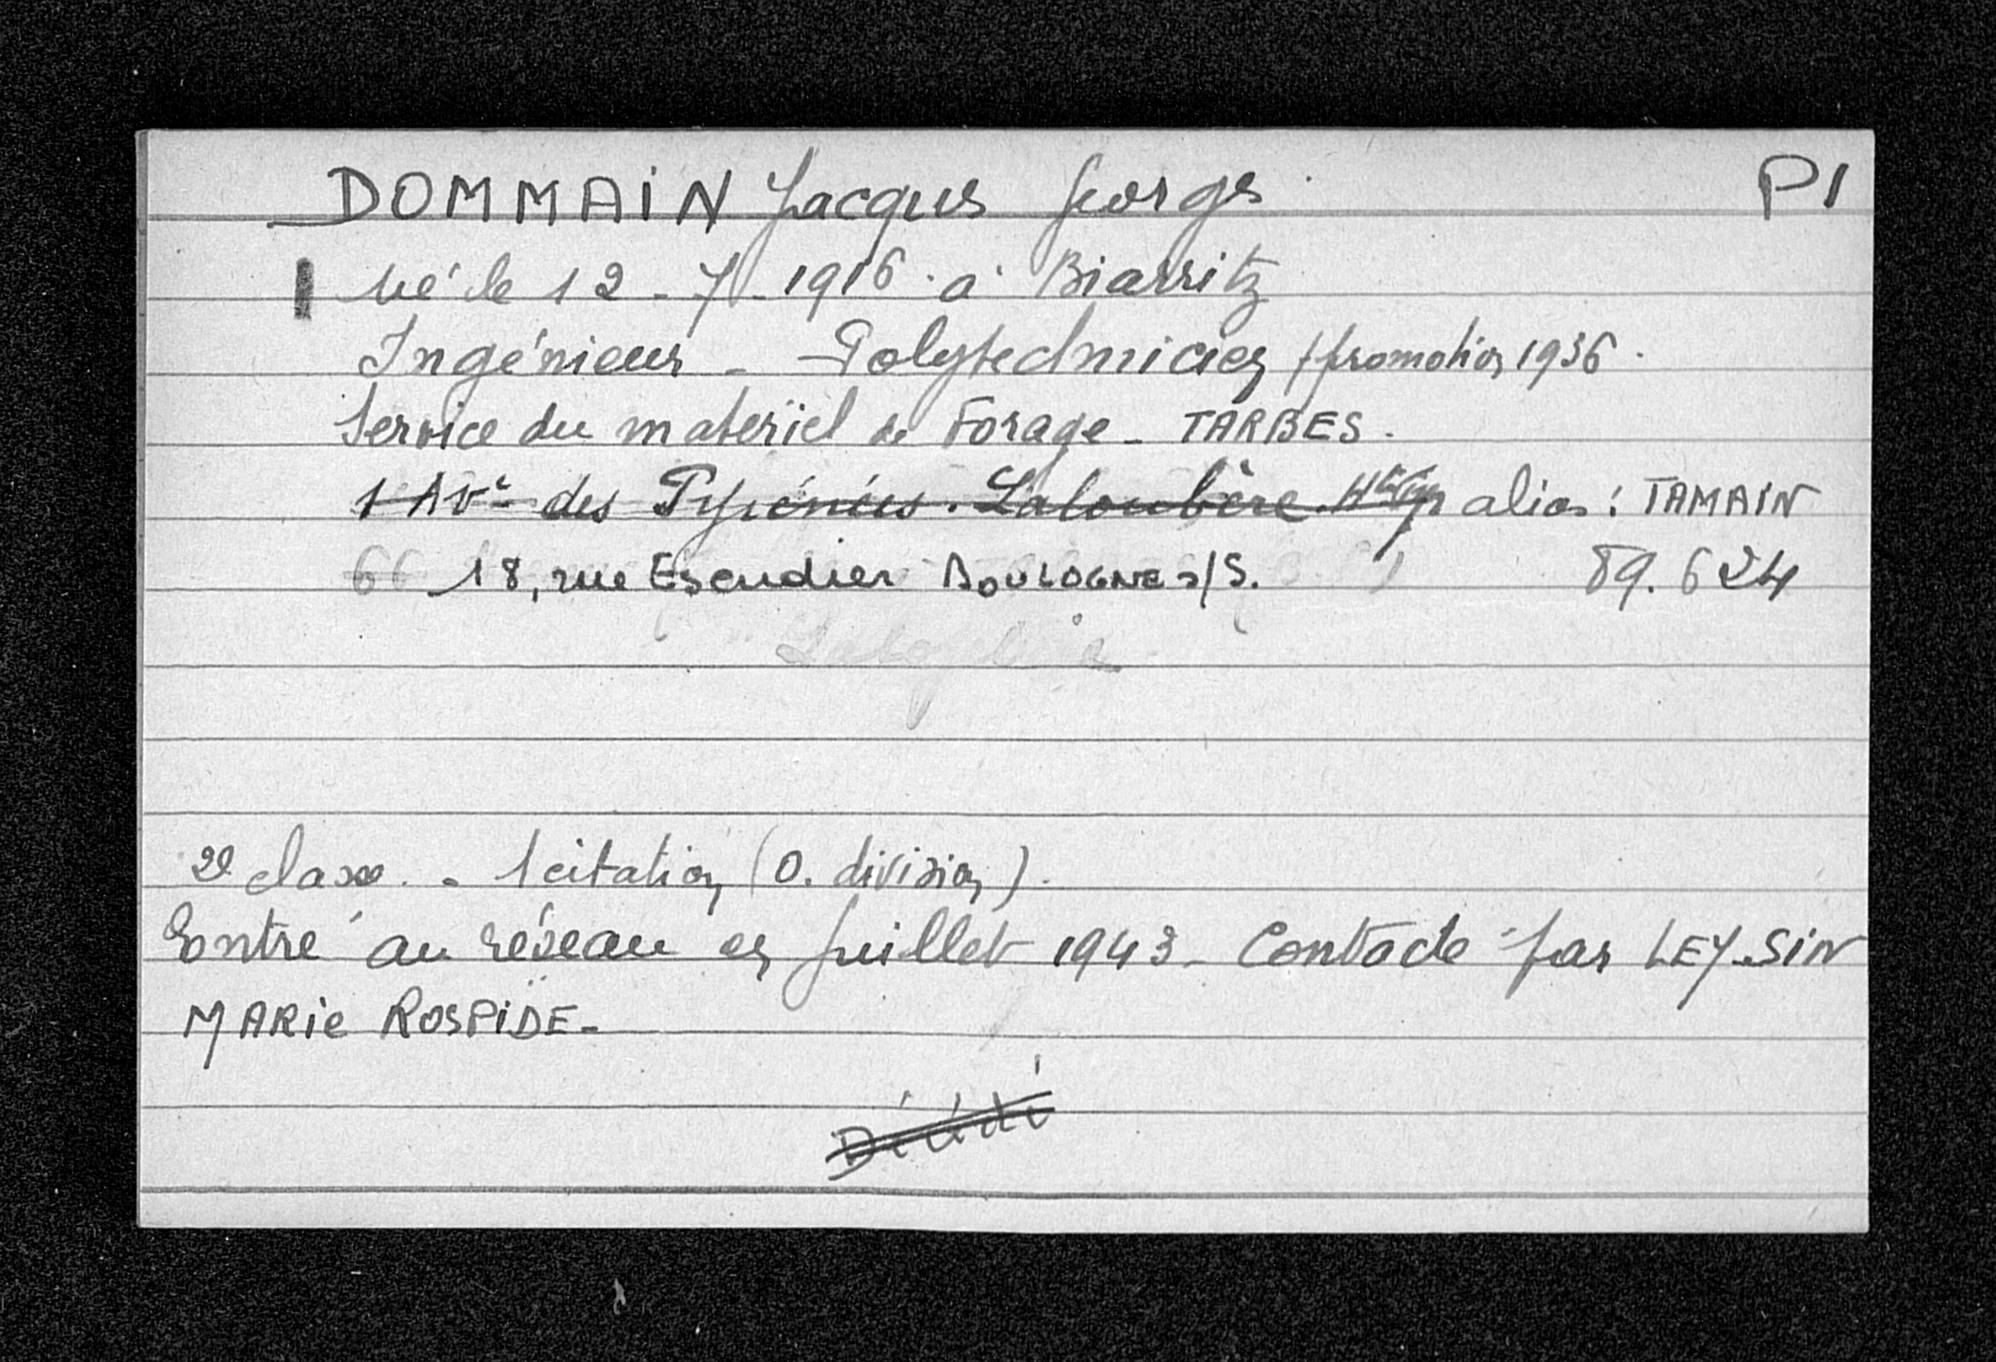 DOMMAIN Jacques Georges P1
Né le 12-7-1916 à Biarritz
Ingénieur - Polytechnicien promotion 1936.
Service du matériel de Forage - TARBES.
1 Ave des Pyrénées. Laloubère. alias : TAMAIN
66 18, rue Escudier BOULOGNE s/S. 89.624
2e classe. - 1 citation (O. division).
Entré au réseau en Juillet 1943 - Contacté par LEY-SIN
MARIE ROSPIDE -
Décédé